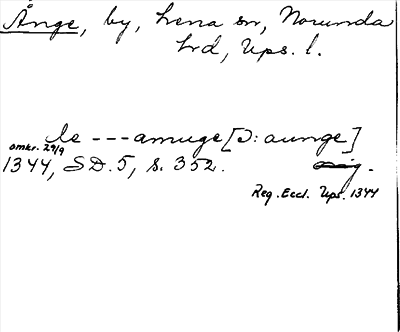 Ånge, by, Lena sn, Norunda
hrd, Ups. l.
le --- amuge [ɔ: aunge]
omkr. 29/9
1344, SD. 5, s. 352.
Reg. Eccl. Ups. 1344